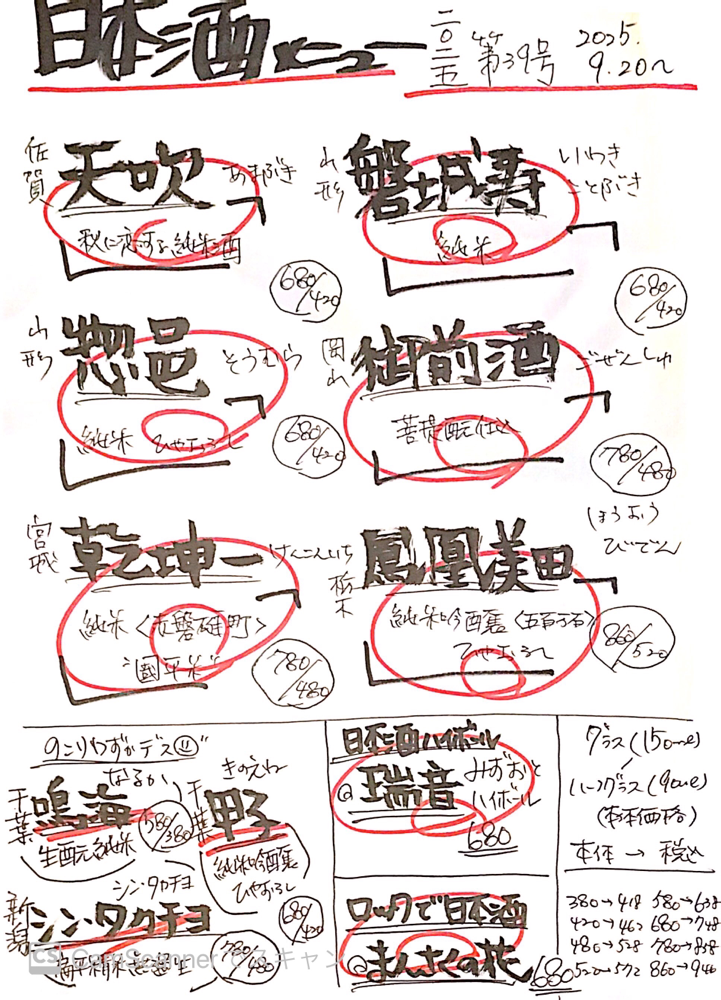 日本酒メニュー
二〇二五 第39号
2025.
9.20〜
佐賀
天吹
あまぶき
秋に恋する純米酒
680/420
山形
磐城壽
いわき
ことぶき
純米
680/420
山形
惣邑
そうむら
純米 ひやおろし
680/420
岡山
御前酒
ごぜんしゅ
菩提酛仕込
780/480
宮城
乾坤一
けんこんいち
純米〈赤磐雄町〉
780/480
栃木
鳳凰美田
ほうおう
びでん
純米吟醸〈五百万石〉
ひやおろし
860/520
のこりわずかデス
千葉
鳴海
なるか
生酛純米
580/380
千葉
甲子
きのえね
純米吟醸
ひやおろし
680/420
新潟
シン・タカチヨ
シン・タカチヨ
扁平精米
780/480
日本酒ハイボール
@瑞音
みずおと
ハイボール
680
ロックで日本酒
@まんさくの花
680
グラス(150ml)
ハーフグラス(90ml)
(本体価格)
本体→税込
380→418 580→638
420→462 680→748
480→528 780→858
520→572 860→946
CS CamScanner でスキャン